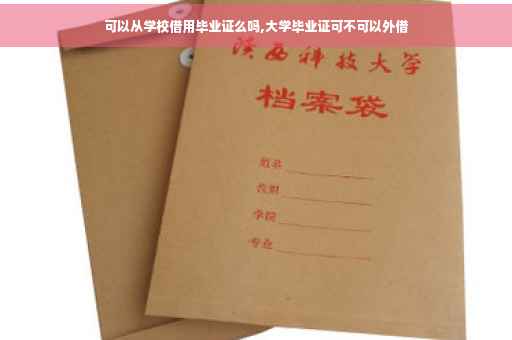 可以从学校借用毕业证么吗,大学毕业证可不可以外借
陕西科技大学
档案袋
姓名
学院
专业